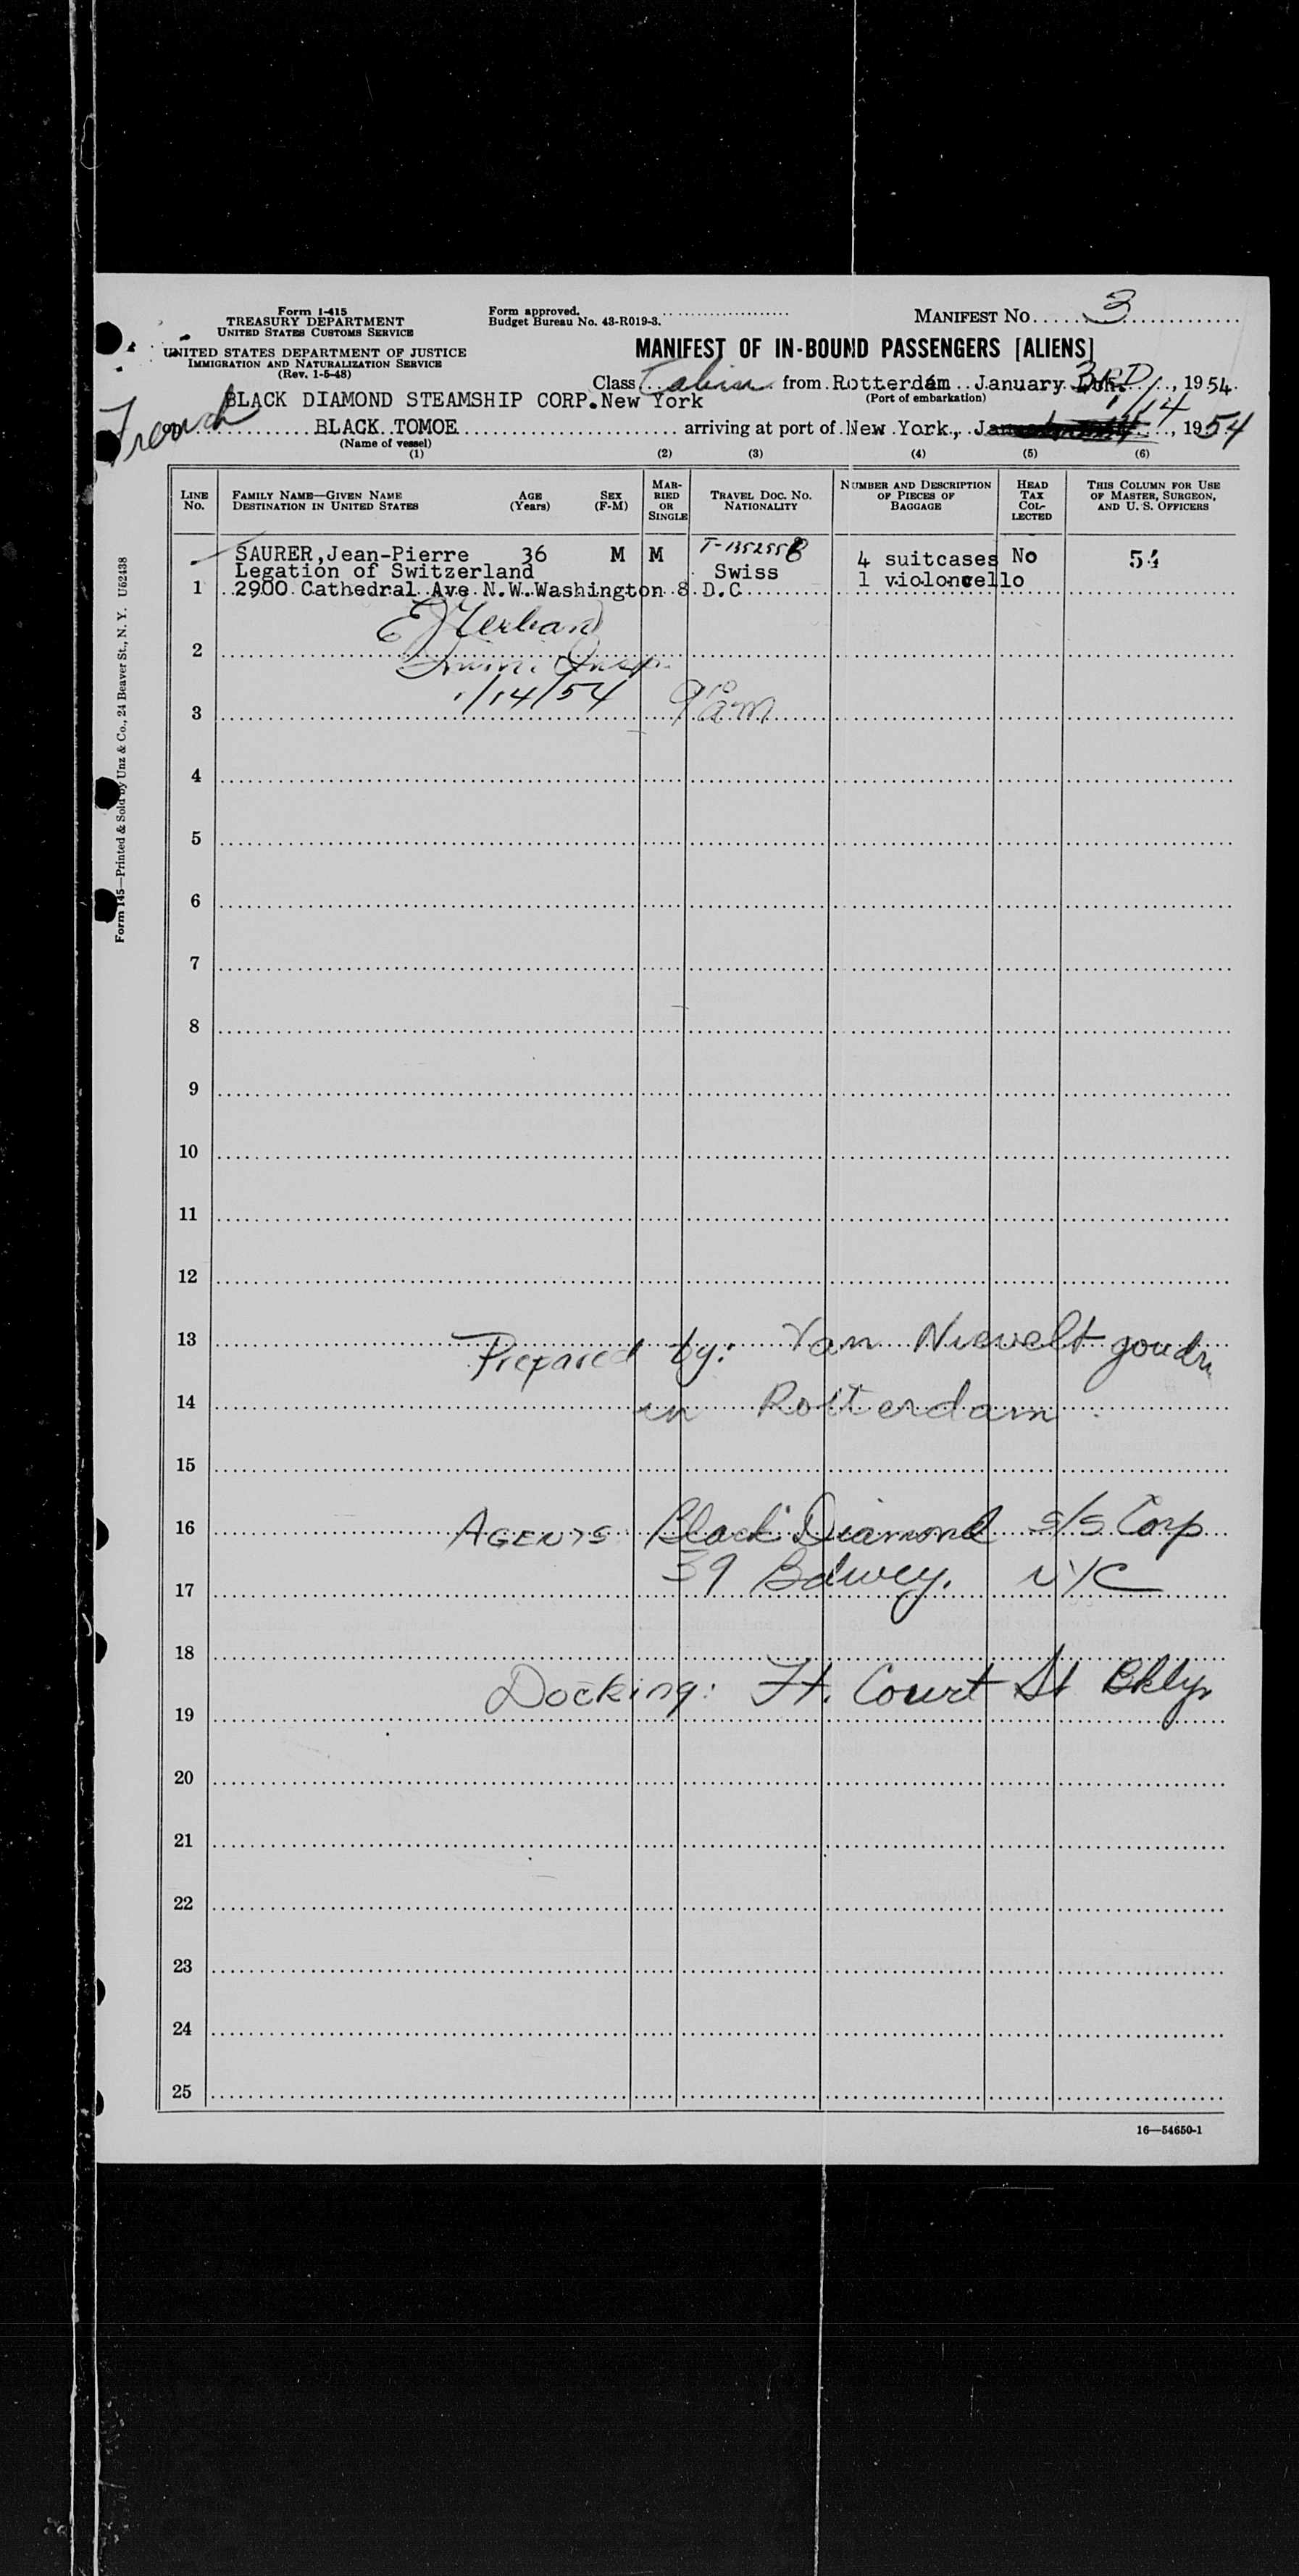 Form I-415
TREASURY DEPARTMENT
UNITED STATES CUSTOMS SERVICE
UNITED STATES DEPARTMENT OF JUSTICE
IMMIGRATION AND NATURALIZATION SERVICE
(Rev. 1-5-48)
Form approved.
Budget Bureau No. 43-R019-3.
MANIFEST NO. 3
MANIFEST OF IN-BOUND PASSENGERS [ALIENS]
Class Cabin from Rotterdam January 3RD, 1954
(Port of embarkation)
French
BLACK DIAMOND STEAMSHIP CORP. New York
1/14
BLACK TOMOE arriving at port of New York, 1954
(Name of vessel)
(1) (2) (3) (4) (5) (6)
LINE NO.
FAMILY NAME—GIVEN NAME
DESTINATION IN UNITED STATES
AGE (Years)
SEX (F-M)
MARRIED OR SINGLE
TRAVEL DOC. NO.
NATIONALITY
NUMBER AND DESCRIPTION OF PIECES OF BAGGAGE
HEAD TAX COLLECTED
THIS COLUMN FOR USE OF MASTER, SURGEON, AND U. S. OFFICERS
SAURER, Jean-Pierre 36 M M 4 suitcases No 54
Legation of Switzerland Swiss 1 violoncello
1 2900 Cathedral Ave N.W. Washington 8 D.C
2
Imm. Insp.
3 1/14/54 9 am
4
5
6
7
8
9
10
11
12
13 Prepared by: Van Nievelt goudr
14 in Rotterdam
15
16 AGENTS Black Diamond S/S Corp
17 39 Bdwey. NYC
18
19 Docking: Ft. Court St Bklyn
20
21
22
23
24
25
16—54650-1
Form 145—Printed & Sold by Unz & Co., 24 Beaver St., N. Y. U52438